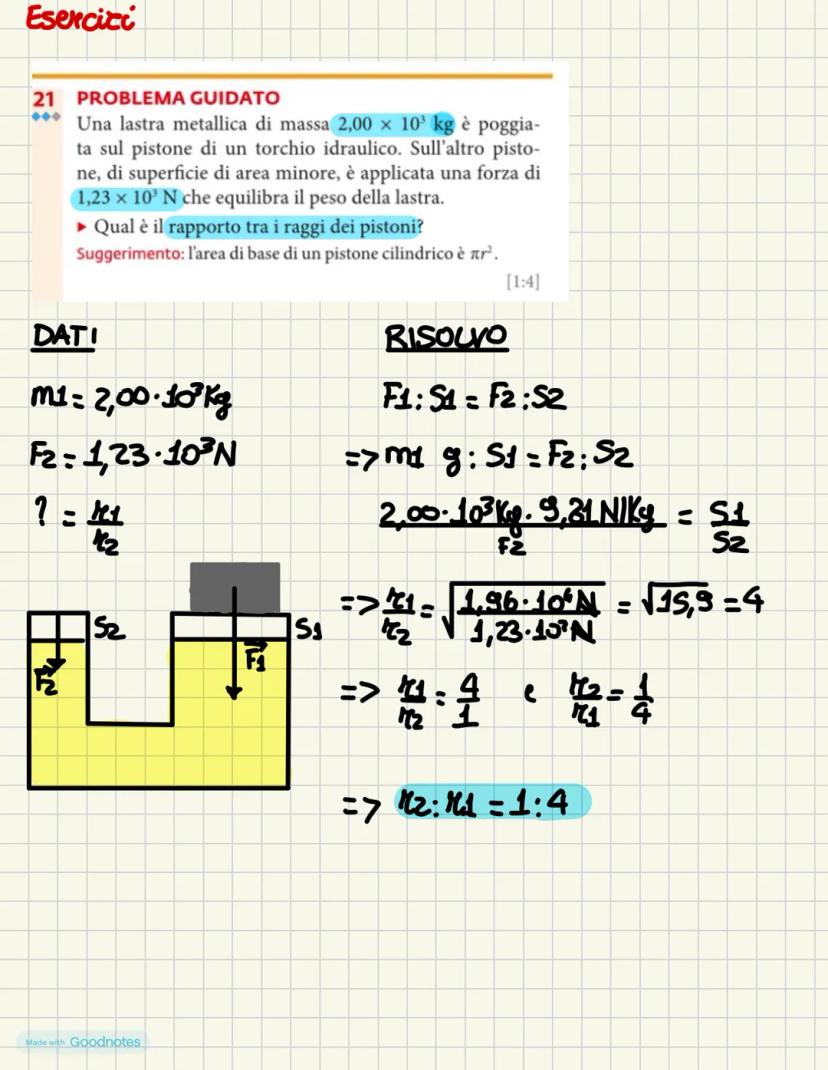 Esercizi
21 PROBLEMA GUIDATO
Una lastra metallica di massa 2,00 × 10³ kg è poggia-
ta sul pistone di un torchio idraulico. Sull'altro pisto-
ne, di superficie di area minore, è applicata una forza di
1,23 × 10³ N che equilibra il peso della lastra.
▸ Qual è il rapporto tra i raggi dei pistoni?
Suggerimento: l'area di base di un pistone cilindrico è πr².
[1:4]
DATI
m1 = 2,00·10³Kg
F2 = 1,23·10³N
? = r1/r2
RISOLVO
F1 : S1 = F2 : S2
=> m1 g : S1 = F2 : S2
2,00·10³Kg·9,81N/Kg / F2 = S1/S2
=> r1/r2 = √(1,96·10⁴N / 1,23·10³N) = √15,9 = 4
=> r1/r2 = 4/1 e r2/r1 = 1/4
=> r2 : r1 = 1 : 4
S2
S1
F2
F1
Made with Goodnotes